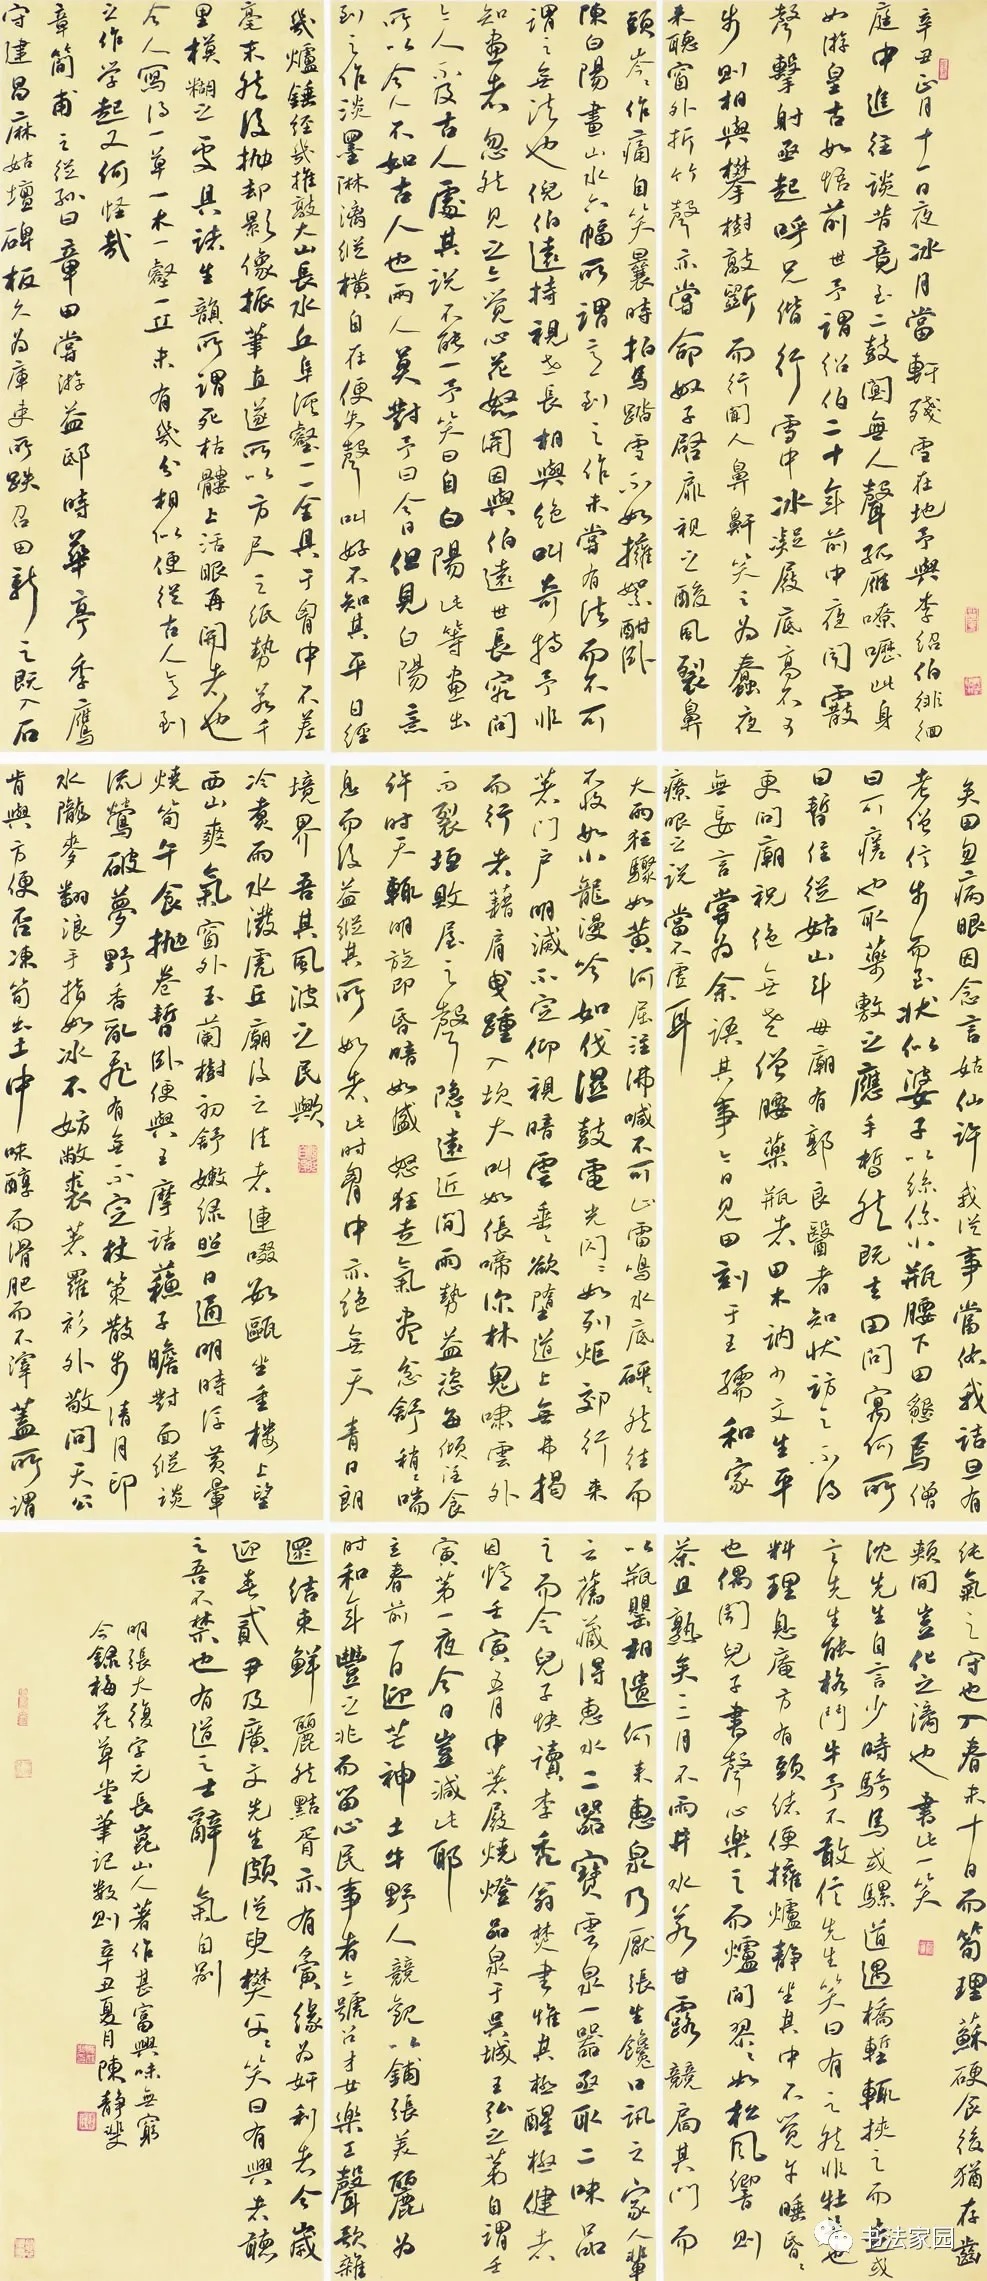 辛丑正月十一日夜冰月當軒殘雪在地予與李紹伯徘徊
庭中追往談昔竟至二鼓闃無人聲孤雁嘹嚦此身
如游皇古如悟前世予謂紹伯二十年前中夜聞霰
聲擊射亟起呼兄偕行雪中冰凝屐底高不可
步則相與攀樹敲斷而行聞人鼻鼾笑之為蠢夜
來聽窗外折竹聲亦嘗命奴子啓扉視之酸風裂鼻
頭岑岑作痛自笑曩時拍馬踏雪不如擁絮酣臥
陳白陽畫山水六幅所謂意到之作未嘗有法而不可
謂之無法也倪伯遠持視世長相與絕叫奇特予非
知畫者忽然見之亦覺心花怒開因與伯遠世長窮問
今人不及古人處其說不能一予笑曰自白陽此等畫出
所以今人不如古人也兩人莫對予曰今日但見白陽意
到之作淡墨淋漓縱橫自在便失聲叫好不知其平日經
幾爐錘經幾推敲大山長水丘阜溪壑一一全具于胷中不差
毫末然後拋却影像振筆直遂所以方尺之紙勢若千
里模糊之處具諸生韻所謂死枯髏上活眼再開者也
今人寫得一草一木一壑一丘未有幾分相似便從古人意到
之作学起又何怪哉
章簡甫之從孫曰章田嘗游益邸時華亭季鷹
守建昌麻姑壇碑板久為庫吏所跌召田新之既入石
矣田忽病眼因念言姑仙許我從事當佑我詰旦有
老僧信步而至狀似婆子以絲係小瓶腰下田懇焉僧
曰可瘥也取藥敷之應手皙然既去田問寓何所
曰暫住從姑山斗母廟有郭良醫者知狀訪之不得
更問廟祝絕無老僧腰藥瓶者田木訥少文生平
無妄言嘗為余語其事今日見田刻于王孺和家
療眼之說當不虛耳
大雨狂驟如黃河屈注沸喊不可止雷鳴水底砰砰然往而
不收如小龍漫吟如伐濕鼓電光閃閃如列炬郊行來
著門戶明滅不定仰視暗雲垂垂欲墮道上無弗揭
而行者藉肩曳踵入坎大叫如長啼深林鬼嘯雲外
而裂垣敗屋之聲隱隱遠近間雨勢益恣每傾注食
許时天輒明旋即昏暗如盛怒狂走氣盡怠舒稍稍喘
息而後益縱其所如者此時胷中亦絕無天青日朗
境界吾其風波之民歟
冷煑雨水潑虎丘廟後之佳者連啜數甌坐重樓上望
西山爽氣窗外玉蘭樹初舒嫩绿照日通明時浮黃暈
燒筍午食拋卷暫臥便與王摩詰蘇子瞻對面縱談
流鶯破夢野香亂飛有無不定杖策散步清月印
水隴麥翻浪手指如冰不妨敝裘著羅衫外敬問天公
肯與方便否凍筍出土中味醇而滑肥而不滓蓋所謂
純氣之守也入春未十日而筍理蘇硬食後猶存齒
頰間豈化之漓也書此一笑
沈先生自言少時騎馬或騾道遇橋塹輒挾之而走或
言先生能格鬥牛予不敢信先生笑曰有之然非牡牛也
料理息庵方有頭緒便擁爐靜坐其中不覺午睡昏昏
也偶聞兒子書聲心樂之而爐間翏翏如松風響則
茶且熟矣二月不雨井水若甘露競扃其門而
以瓶罌相遺何来惠泉乃厭張生饞口訊之家人輩
云舊藏得惠水二器寶雲泉一器亟取二味品
之而令兒子快讀李禿翁焚書惟其極醒極健者
因憶壬寅五月中著屐燒燈品泉于吳城王弘之第自謂壬
寅第一夜今日豈減此耶
立春前一日迎芒神土牛野人競觀以鋪張美麗為
时和年豐之兆而留心民事者亦號召才女樂工聲歌雜
遝結束鮮麗然點胥亦有夤缘為奸利者今歲
迎春貳尹及廣文先生頗從臾樊父父笑曰有興者聽
之吾不禁也有道之士辭氣自别
明張大復字元長崑山人著作甚富興味無窮
今録梅花草堂筆記数則辛丑夏月陳靜斐
书法家园